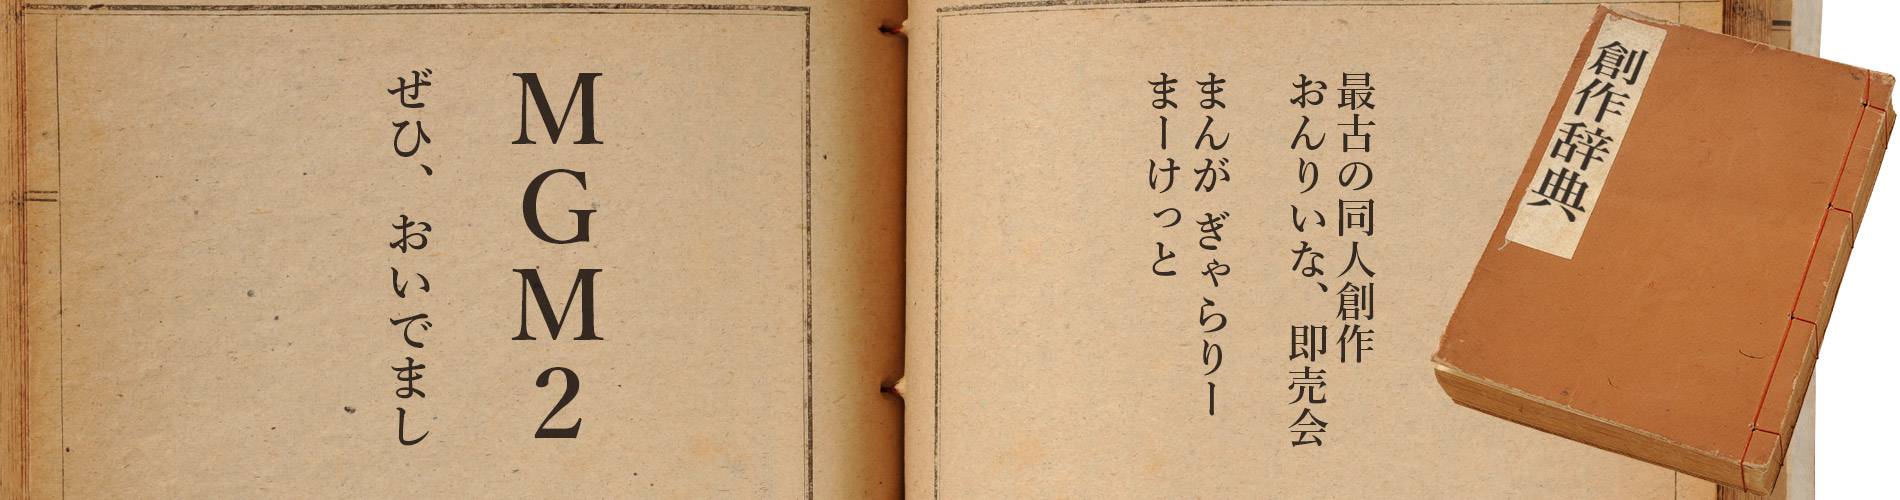 創作辞典
最古の同人創作
おんりいな、即売会
まんが ぎゃらりー
まーけっと
MGM2
ぜひ、おいでまし